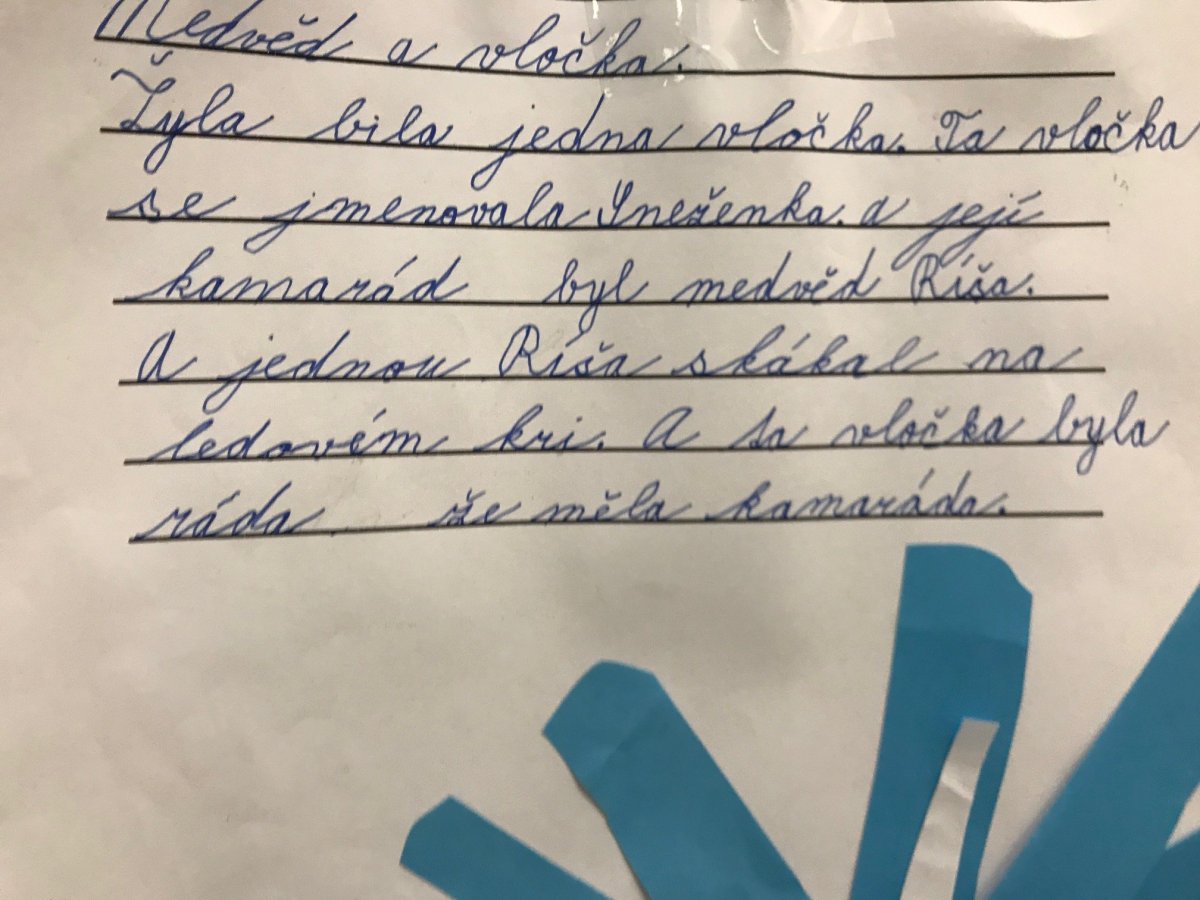 Medvěd a vločka.
Žyla bila jedna vločka. Ta vločka
se jmenovala Sneženka. a její
kamarád byl medvěd Ríša.
A jednou Ríša skákal na
ledovém kri. A ta vločka byla
ráda že měla kamaráda.